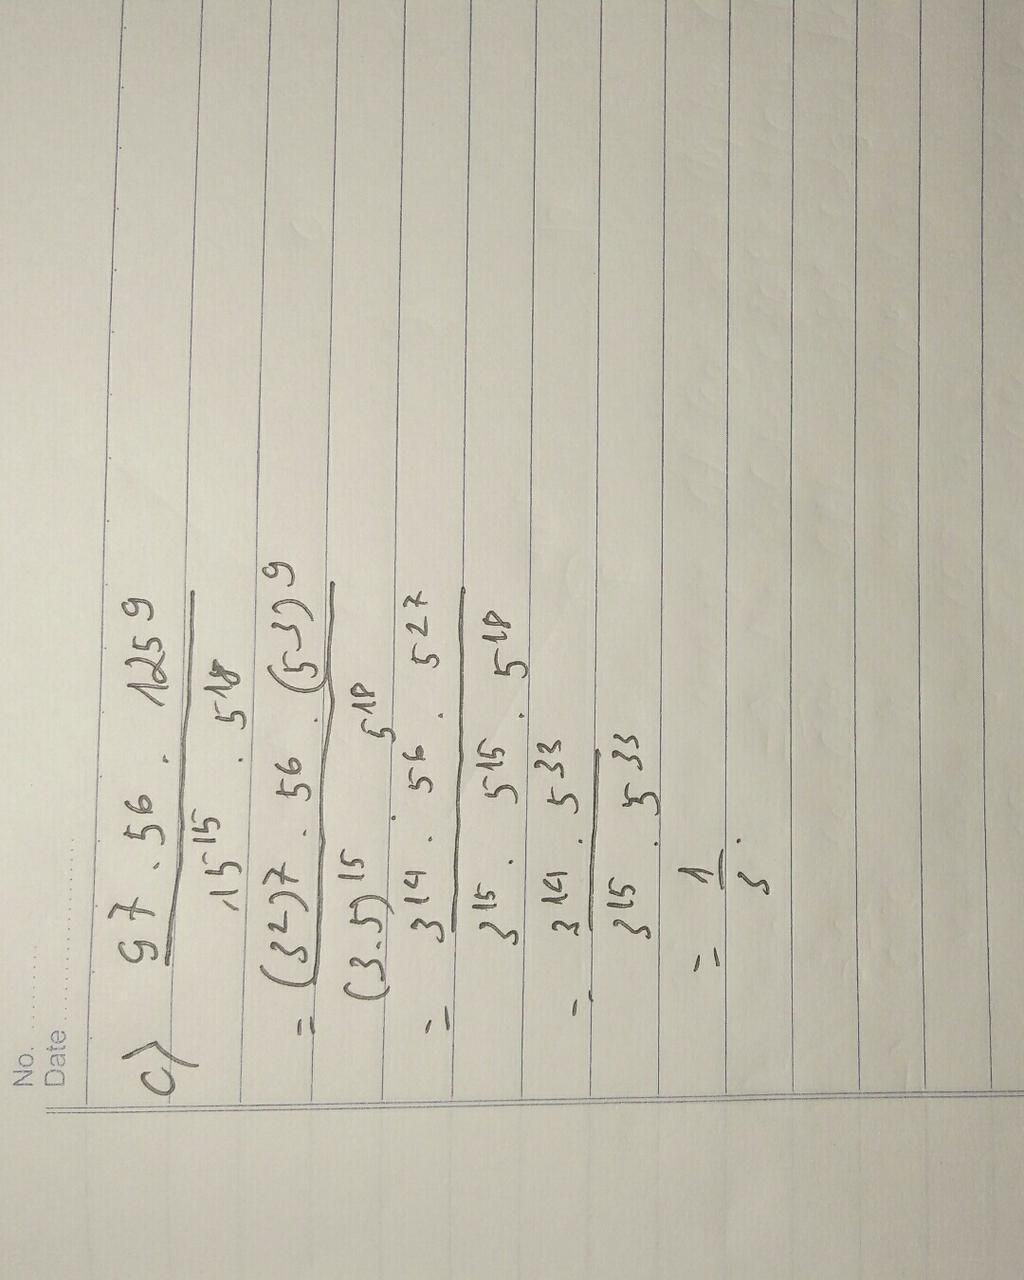 No.
Date
c) 9^7 . 5^6 . 125^9
15^15 . 5^18
= (3^2)^7 . 5^6 . (5^3)^9
(3.5)^15 5^18
= 3^14 . 5^6 . 5^27
3^15 . 5^15 . 5^18
= 3^14 . 5^33
3^15 . 5^33
= 1
3 .